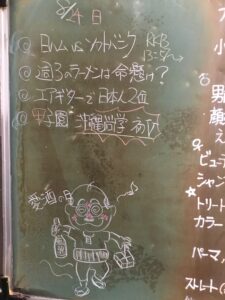 8/24日
◎ 日ハム vs ソフトバンク RKB
◎ 週3のラーメンは命懸け?
◎ エアギターで日本人2位
◎ 甲子園 沖縄尚学 初V
愛酒の日
小
男
顔
え
ビューテ
シャン
☆トリート
カラー
パーマ
ストレート